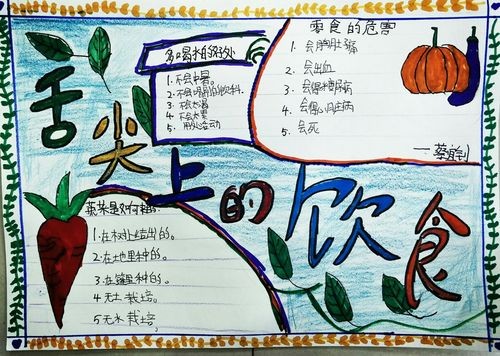 舌尖上的饮食
多喝水的好处
1. 不会中暑。
2. 不会喝有害饮料。
3. 不会太渴
4. 不会太累
5. 用处运动
零食的危害
1. 会肚痛
2. 会出血
3. 会得糖尿病
4. 会得心脏病
5. 会死
蔬菜是如何栽培
1. 在树上结出的。
2. 在土地里种的。
3. 在棚里种的。
4 无土 栽培。
5 无水 栽培。